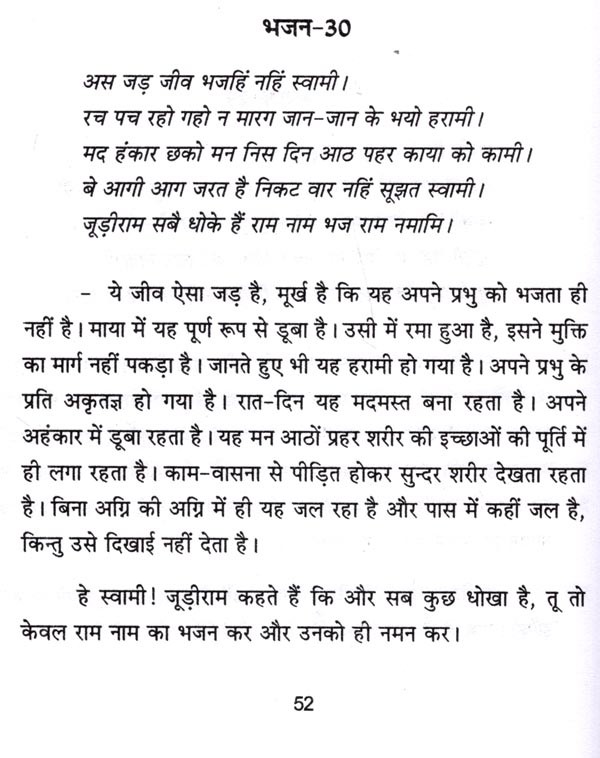 भजन-30
अस जड़ जीव भजहिं नहिं स्वामी।
रच पच रहो गहो न मारग जान-जान के भयो हरामी।
मद हंकार छको मन निस दिन आठ पहर काया को कामी।
बे आगी आग जरत है निकट वार नहिं सूझत स्वामी।
जूड़ीराम सबै धोके हैं राम नाम भज राम नमामि।
- ये जीव ऐसा जड़ है, मूर्ख है कि यह अपने प्रभु को भजता ही
नहीं है। माया में यह पूर्ण रूप से डूबा है। उसी में रमा हुआ है, इसने मुक्ति
का मार्ग नहीं पकड़ा है। जानते हुए भी यह हरामी हो गया है। अपने प्रभु के
प्रति अकृतज्ञ हो गया है। रात-दिन यह मदमस्त बना रहता है। अपने
अहंकार में डूबा रहता है। यह मन आठों प्रहर शरीर की इच्छाओं की पूर्ति में
ही लगा रहता है। काम-वासना से पीड़ित होकर सुन्दर शरीर देखता रहता
है। बिना अग्नि की अग्नि में ही यह जल रहा है और पास में कहीं जल है,
किन्तु उसे दिखाई नहीं देता है।
हे स्वामी! जूड़ीराम कहते हैं कि और सब कुछ धोखा है, तू तो
केवल राम नाम का भजन कर और उनको ही नमन कर।
52